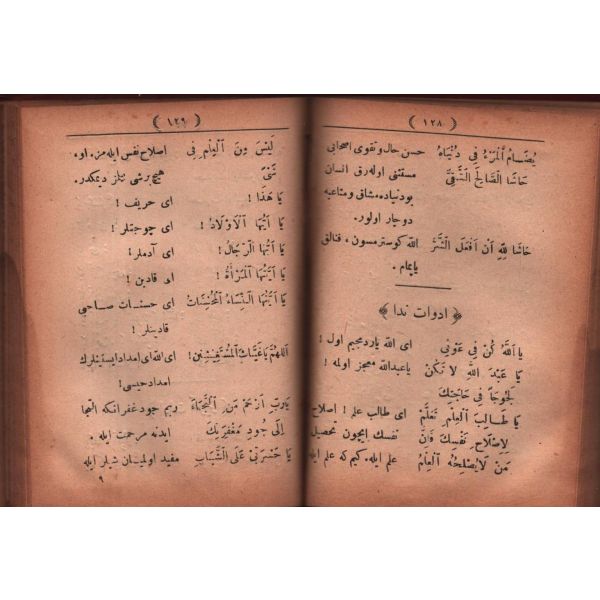 ( ١٢٨ )
يُضَامُ الْمَرْءُ فِي دُنْيَاهُ حسن حال وتقوى اصحابى
حَاشَا الصَّالِحَ التَّقِيَّ مستثنى اوله رق انسان
بودنياده مشاق ومتاعبه
دوچار اولور.
حَاشَا لِلّٰهِ اَنْ اَفْعَلَ الشَّرَّ الله كوسترمسون ، فنالق
يابمام .
﴿ ادوات ندا ﴾
يَا اَللّٰهُ كُنْ فِي عَوْنِي اى الله ياردمجيم اول !
يَا عَبْدَ اللّٰهِ لَا تَكُنْ ياعبدالله معجز اولمه !
لَجُوجًا فِي حَاجَتِكَ
يَا طَالِبَ الْعِلْمِ تَعَلَّمْ اى طالب علم ! اصلاح
لِاِصْلَاحِ نَفْسِكَ فَاِنَّ نفسك ايچون تحصيل
مَنْ لَا يُصْلِحُهُ الْعِلْمُ علم ايله . كيم كه علم ايله
( ١٢٩ )
لَيْسَ مِنَ الْعِلْمِ فِي اصلاح نفس ايله مز . او .
شَيْءٍ هيچ برشى دكلز ديمكدر.
يَا هٰذَا ! اى حريف !
يَا اَيُّهَا الْاَوْلَادُ ! اى چوجقلر !
يَا اَيُّهَا الرِّجَالُ ! اى آدملر !
يَا اَيَّتُهَا الْمَرْأَةُ ! اى قادين !
يَا اَيَّتُهَا النِّسَاءُ الْمُحْسِنَاتُ اى حسنات صاحبى
قادينلر !
اَللّٰهُمَّ يَا غِيَاثَ الْمُسْتَغِيثِينَ ! اى الله اى امداد ايستينلرك
امدادجيسى !
يَارَبِّ اِرْحَمْ مَنِ الْتَجَأَ ربم جود غفرانكه التجا
اِلٰى جُودِ مَغْفِرَتِكَ ايدنه مرحمت ايله .
يَا حَسْرَتِي عَلَى الشَّبَابِ مفيد اولميان شيلر ايله
٩